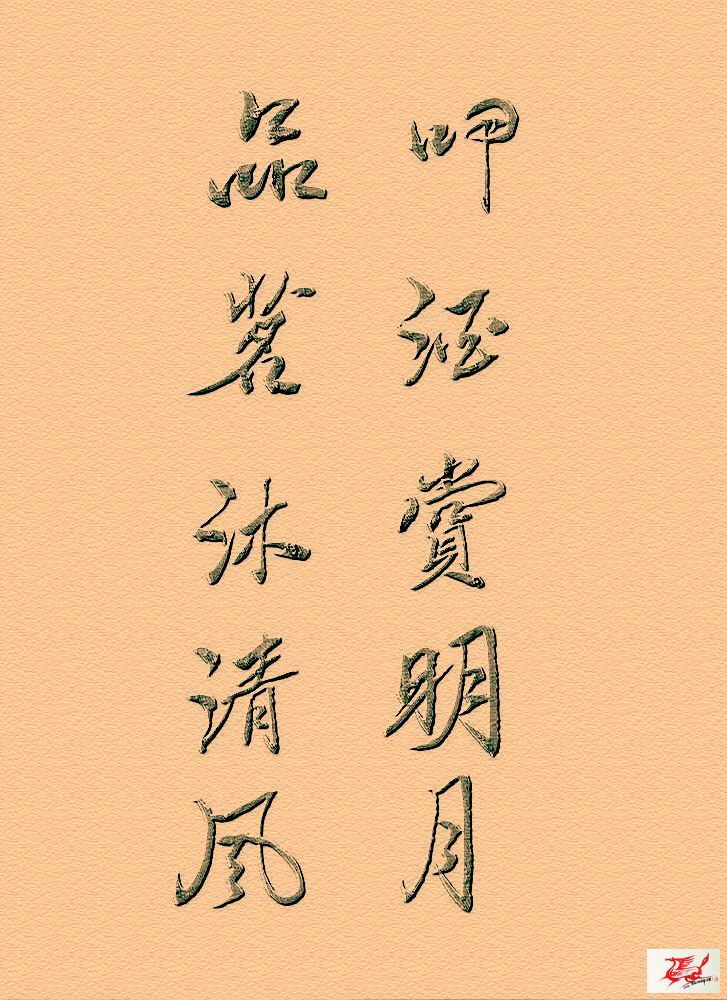 呷酒赏明月
品茗沐清风